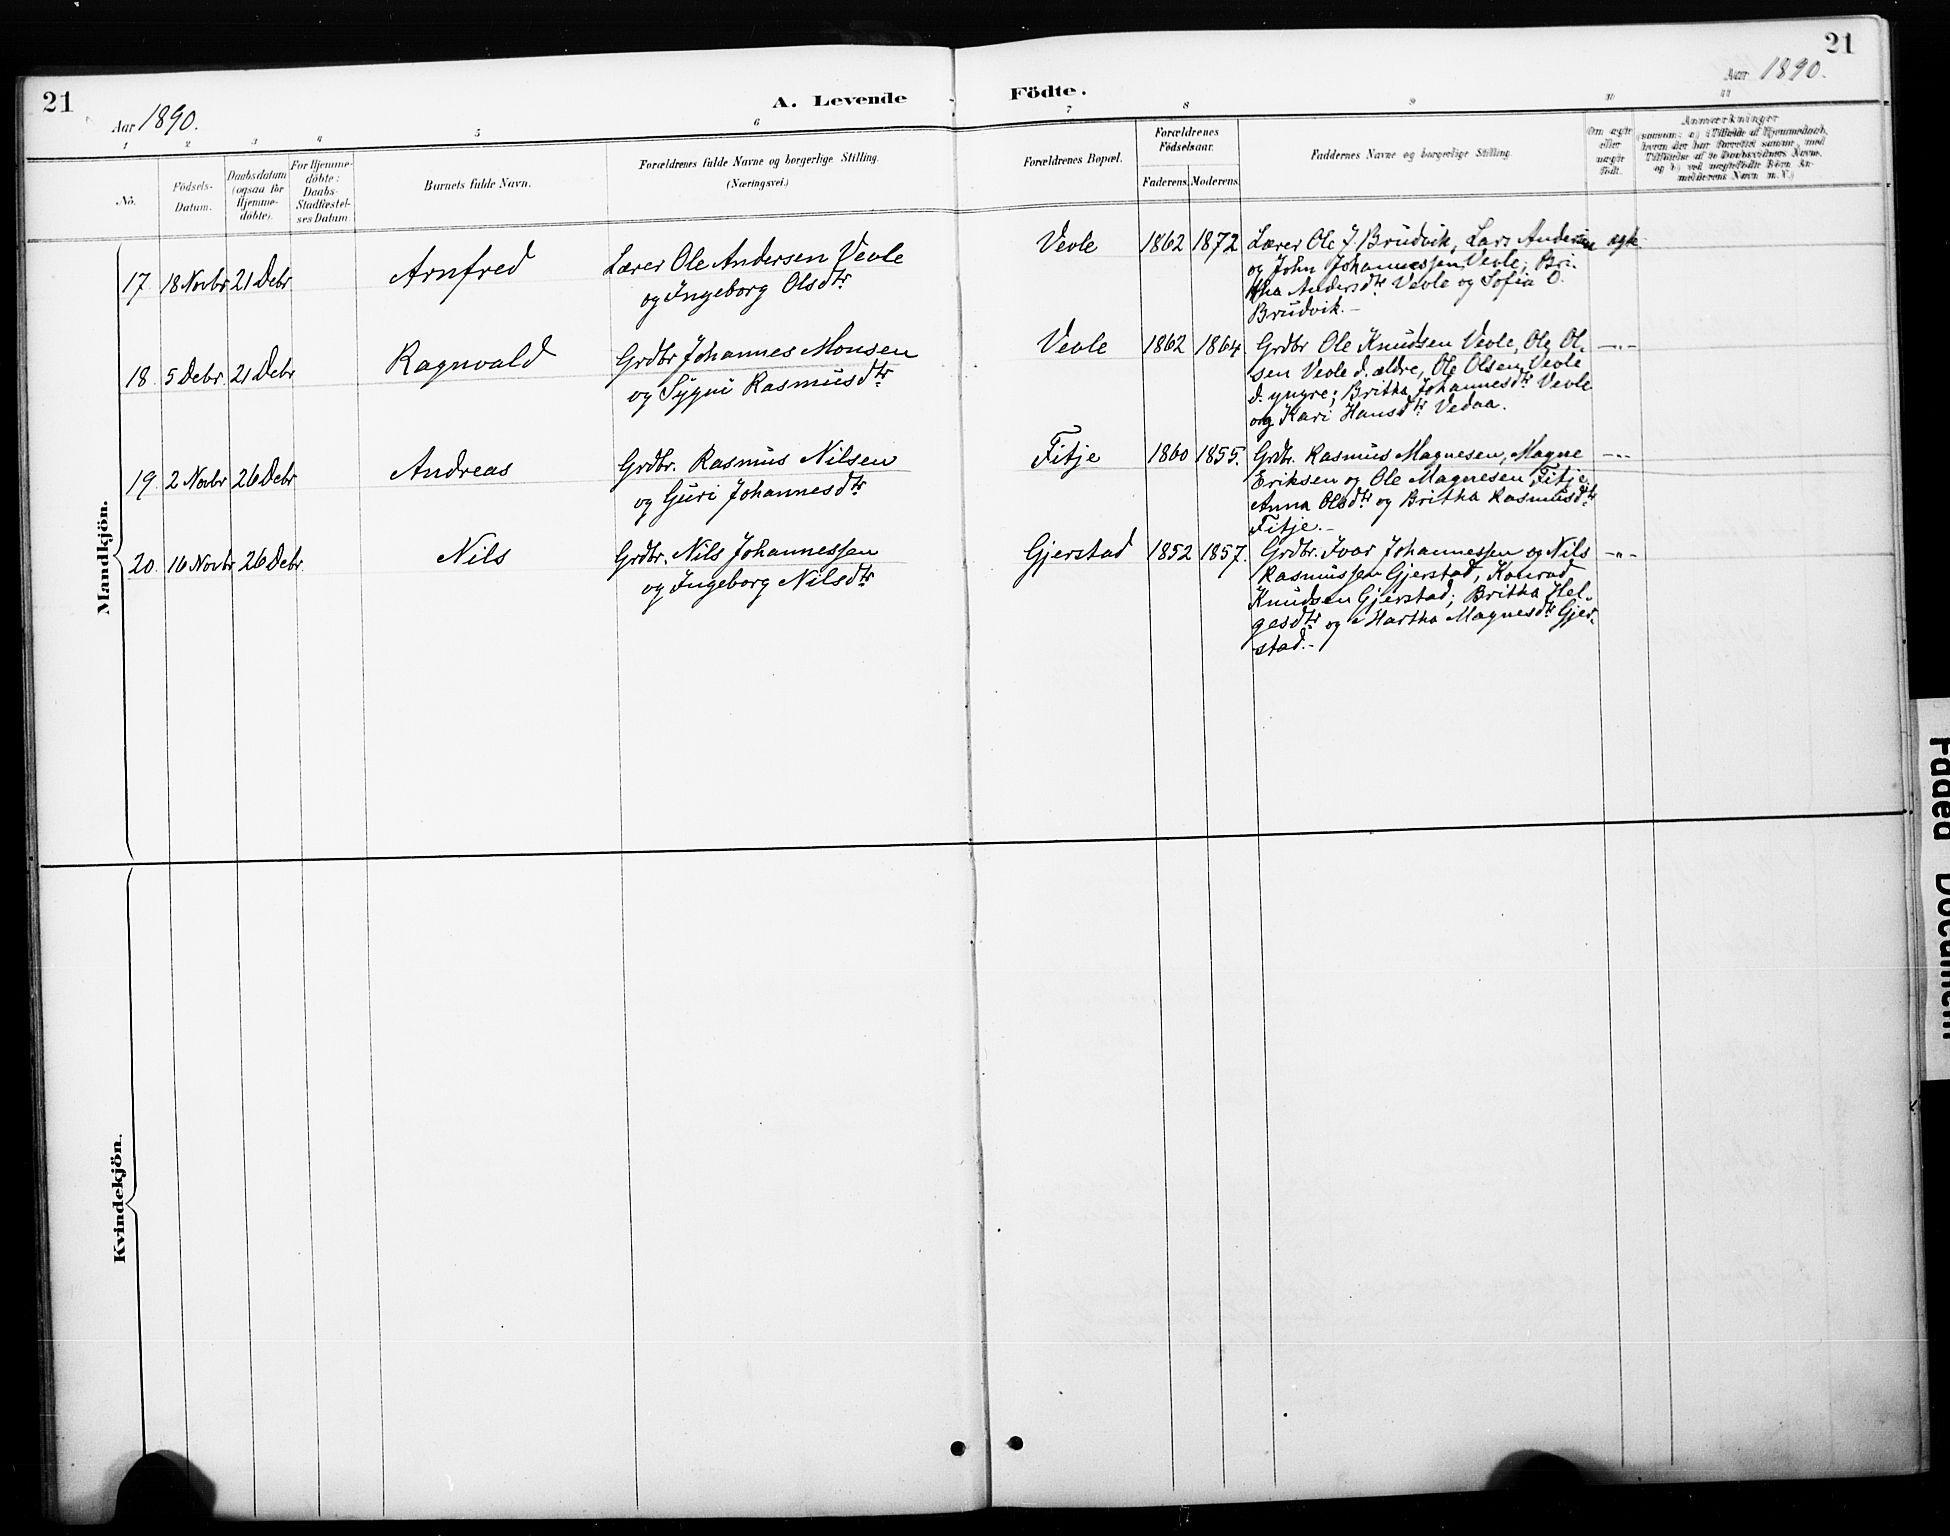 21
Aar 1890.
A. Levende
Födte.
21
Aar 1890.
1
2
3
4
5
6
7
8
9
10
11
No.
Födsels-
Datum.
Daabsdatum
(ogsaa for
Hjemme-
döbte).
For Hjemme-
döbte:
Daabs-
Stadfæstel-
ses Datum
Barnets fulde Navn.
Forældrenes fulde Navne og borgerlige Stilling.
(Næringsvei.)
Forældrenes Bopæl.
Forældrenes
Födselsaar.
Faderens.
Moderens.
Faddernes Navne og borgerlige Stilling.
Om ægte
eller
uægte
födt.
Anmærkninger
Mandkjön.
17
18 Novbr
21 Debr
Arnfred
Lærer Ole Andersen Vevle
og Ingeborg Olsdtr
Vevle
1862
1872
Lærer Ole J. Brudvik, Lars Andersen
og John Johannessen Vevle; Bri-
tha Andersdtr Vevle og Sofia O.
Brudvik.-
ægte
18
5 Debr
21 Debr
Ragnvald
Grdbr Johannes Monsen
og Sygni Rasmusdtr
Vevle
1862
1864
Grdbr Ole Knudsen Vevle, Ole Ol-
sen Vevle d. ældre, Ole Olsen Vevle
d. yngre; Britha Johannesdtr Vevle
og Kari Hansdtr Vedaa.
-"-
19
2 Novbr
26 Debr
Andreas
Grdbr. Rasmus Nilsen
og Guri Johannesdtr
Fitje
1860
1855.
Grdbr. Rasmus Magnesen, Magne
Eriksen og Ole Magnesen Fitje
Anna Olsdtr og Britha Rasmusdtr
Fitje.-
-"-
20
16 Novbr
26 Debr
Nils
Grdbr. Nils Johannessen
og Ingeborg Nilsdtr
Gjerstad
1852
1857.
Grdbr. Ivar Johannessen og Nils
Rasmussen Gjerstad, Konrad
Knudsen Gjerstad; Britha Hel-
gesdtr og Martha Magnesdtr Gjer-
stad.-
-"-
Kvindekjön.
Faded Document